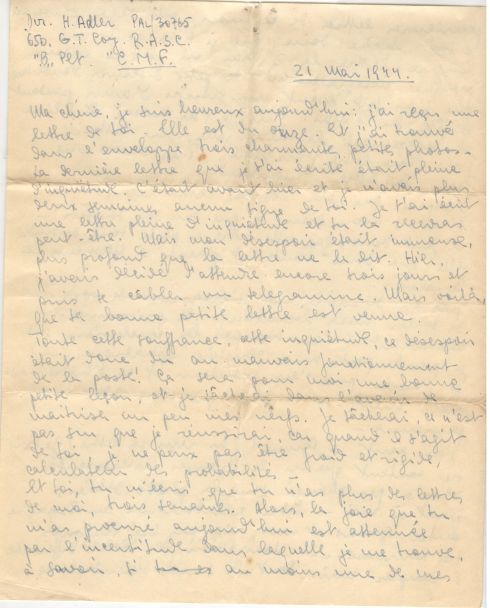 Dvr. H. Adler PAL/30765
650. G.T. Coy. R.A.S.C.
"B" Plt. C.M.F.
21 Mai 1944.
Ma chérie, je suis heureux aujourd'hui: j'ai reçu une
lettre de toi. Elle est du onze. Et j'ai trouvé
dans l'enveloppe trois charmante, petite photos.
La dernière lettre que je t'ai écrite était pleine
d'inquiétude. C'était avant hier et je n'avais plus
deux semaines aucun signe de toi. Je t'ai écrit
une lettre pleine d'inquiétude et tu la recevras
peut-être. Mais mon désespoir était immense,
plus profond que la lettre ne le dit. Hier,
j'avais décidé d'attendre encore trois jours et
puis te câbler un telegramme. Mais voilà,
que ta bonne petite lettre est venue.
Toute cette souffrance, cette inquiétude, ce désespoir
était donc du au mauvais fonctionnement
de la poste! Ça sera pour moi une bonne
petite leçon, et je tâcherai dans l'avenir de
maitriser un peu mes nerfs. Je tâcherai, ce n'est
pas sur que je réussirai, car quand il s'agit
de toi, je ne peux pas être froid et rigide,
calculateur des probabilités -
Et toi, tu m'écris que tu n'as plus des lettres
de moi, trois semaines. Alors, la joie que tu
m'as procuré aujourd'hui est attenuée
par l'incertitude dans laquelle je me trouve,
à savoir, si au moins une de mes